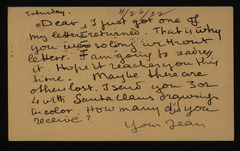 Saturday. 11/26/32
Dear, I just got one of
my letters returned. That is why
you were so long without
letters. I am going to readress
it. Hope it reaches you this
time. Maybe there are
others lost. I send you 3 or
4 with Santa Claus drawing
in color. How many did you
receive?
Your Jean